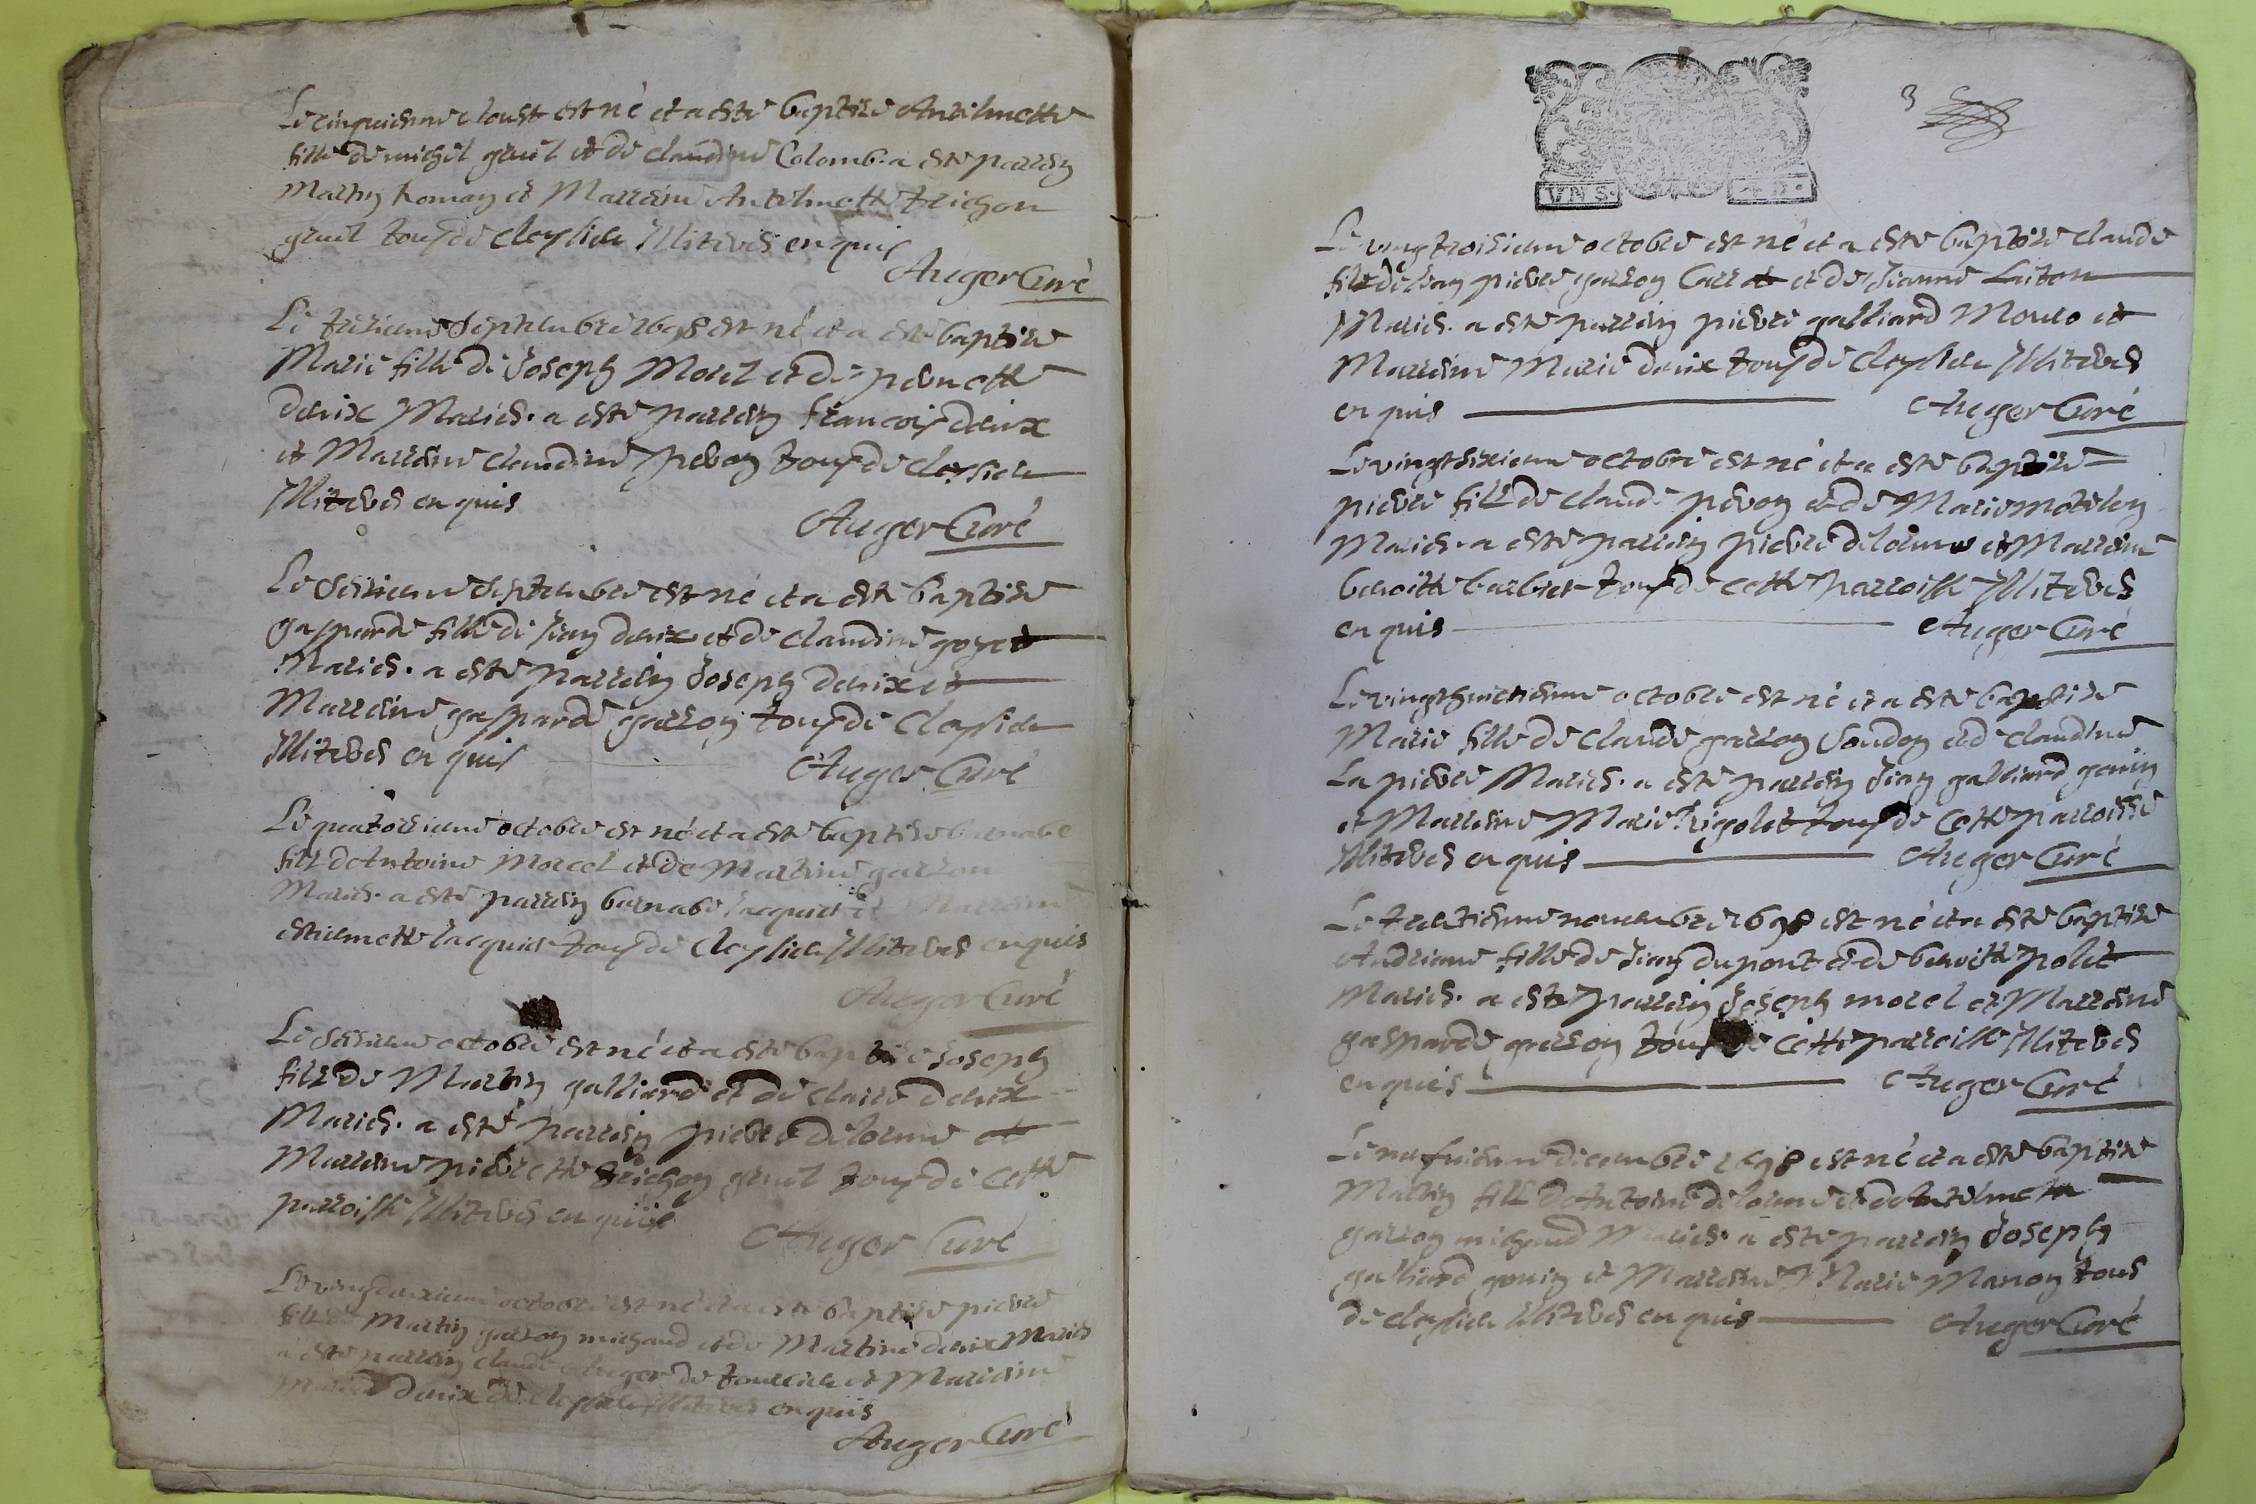 Le cinquiesme aoust est né et a esté baptisée Anthelmette
fille de michel gruel et de claudine Colomb. a esté parrein
Martin homan et Marreine Anthelmette trichon
gruel tous de cleysieu Illiterés enquis
Auger Curé
Le treziesme Septembre 1698 est né et a esté baptisée
Marie fille de Joseph Morel et de pernette
deuix Mariés. a esté parrein francois deuix
et Marreine claudine pevon tous de cleysieu
Illiterés enquis
Auger Curé
Le Seiziesme Septembre est né et a esté baptisée
gasparde fille de Jean deuix et de claudine goyet
Mariés. a esté parrein Joseph deuix et
Marreine gasparde garron tous de Cleysieu
Illiterés enquis
Auger Curé
Le quatorziesme octobre est né et a esté baptisé barnabé
fils dAntoine Morel et de Martine garron
Mariés. a esté parrein barnabé Jacquier et Marreine
estiennette Jacquier tous de Cleysieu Illiterés enquis
Auger Curé
Le Seiziesme octobre est né et a esté baptisé Joseph
fils de Martin galliard et de claire deuix
Mariés. a esté parrein pierre delorme et
Marreine pierrette trichon gruel tous de Cette
parroisse Illiterés enquis
Auger Curé
Le vingdeuxieme octobre est né et a esté baptisé pierre
fils de Martin garron michaud et de Martine deuix Mariés
a esté parrein claude Auger de et Marreine
deuix de cleysieu Illiterés enquis
Auger Curé
3
VN S. 4 D.
Le vingtroisieme octobre est né et a esté baptisé claude
fils de Jean pierre garron Carrat et de Jeanne Laiton
Mariés. a esté parrein pierre galliard Mouro et
Marreine Marie deuix tous de Cleysieu Illiterés
enquis Auger Curé
Le vingtsixieme octobre est né et a esté baptisé
pierre fils de claude pevon et de Marie motelon
Mariés. a esté parrein pierre delorme et Marreine
benoitte barbier tous de cette parroisse Illiterés
enquis Auger Curé
Le vingthuictiesme octobre est né et a esté baptisée
Marie fille de claude garron Soudon et de claudine
La pierre Mariés. a esté parrein Jean galliard gonin
et Marreine Marie rigolet tous de Cette parroisse
Illiterés enquis Auger Curé
Le trentiesme novembre 1698 est né et a esté baptisée
Andrienne fille de Jean dupont et de benoitte polet
Mariés. a esté parrein Joseph morel et Marreine
gasparde garron tous de Cette parroisse Illiterés
enquis Auger Curé
Le neufuiesme decembre 1698 est né et a esté baptisé
Martin fils dAntoine delorme et dAnthelmette
garron michaud Mariés. a esté parrein Joseph
galliard gonin et Marreine Marie Manon tous
de cleysieu Illiterés enquis Auger Curé